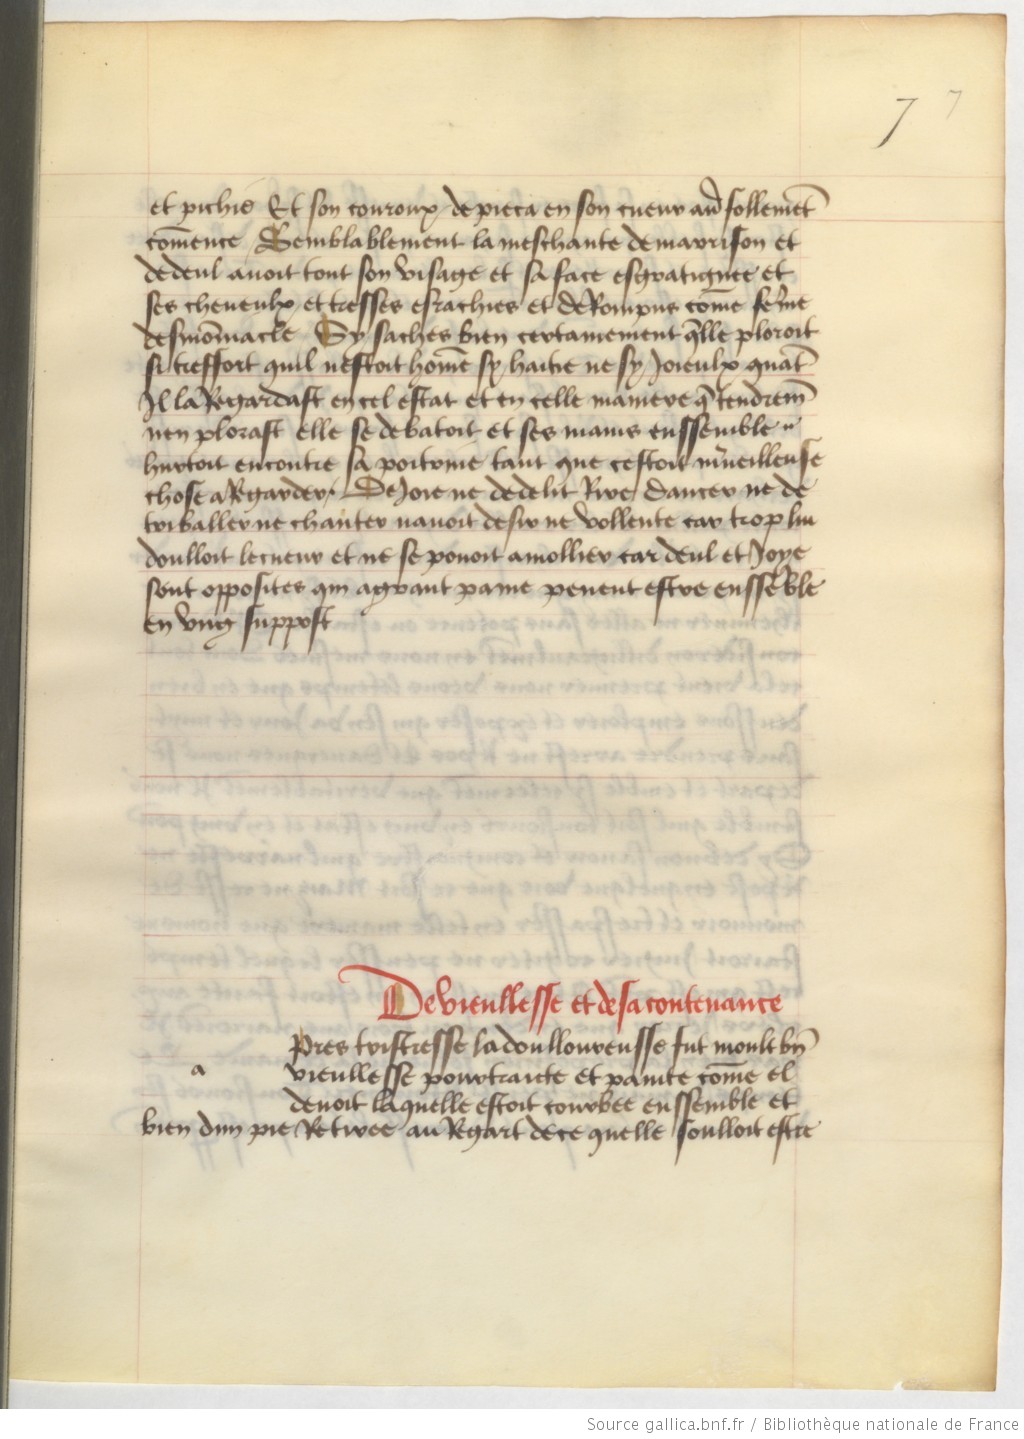 7 7
et pichie Et son couroux de pieca en son cueur follemēt
cōmence Semblablement la meschante de maurison et
de deul auoit tout son visage et sa face esgratignee et
ses cheueulx et tresses esrachies et deRompus cōme feme
desmōniacle Sy saches bien certainement q̄lle ploroit
si treffort quil nestoit hōme sy haitie ne sy Joieulx quāt
Jl la Regardast en cel estat et en celle maniere q̄ tendremēt
nen plorast elle se debatoit et ses mains enssemble
hurtoit encontre sa poitrine tant que cestoit mueilleuse
chose a Regarder. De Joie ne de delit Rire dancer ne de
triballer ne chanter nauoit desir ne vollente car trop lui
doulloit le cueur et ne se pouoit amollier car deul et Joye
sont opposites qui a grant paine peuent estre enssēble
en vng suppost
De vieullesse et de sa contenance
Pres tristresse la doulloureusse fut moult bn̄
a vieullesse pourtraicte et painte cōme el
deuoit laquelle estoit courbee enssemble et
bien dun pie Retiree au Regart de ce quelle soulloit estre
Source gallica.bnf.fr / Bibliothèque nationale de France